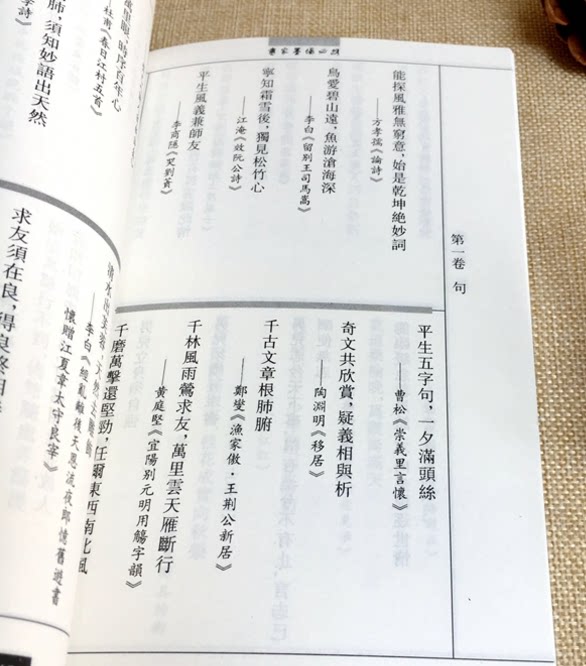 書家墨場必攜
第一卷 句
能探風雅無窮意，始是乾坤絶妙詞
——方孝孺《論詩》
鳥愛碧山遠，魚游滄海深
——李白《留別王司馬嵩》
寧知霜雪後，獨見松竹心
——江淹《效阮公詩》
平生風義兼師友
——李商隱《哭劉蕡》
平生五字句，一夕滿頭絲
——曹松《崇義里言懷》
奇文共欣賞，疑義相與析
——陶淵明《移居》
千古文章根肺腑
——鄭燮《漁家傲·王荆公新居》
千林風雨鶯求友，萬里雲天雁斷行
——黄庭堅《宜陽別元明用觴字韻》
千磨萬擊還堅勁，任爾東西南北風
清水出芙蓉，天然去雕飾
——李白《經亂離後天恩流夜郎憶舊遊書
懷贈江夏韋太守良宰》
萬里眼，時序百年心
杜甫《春日江村五首》
肺，須知妙語出天然
學詩》
求友須在良，得良終相善